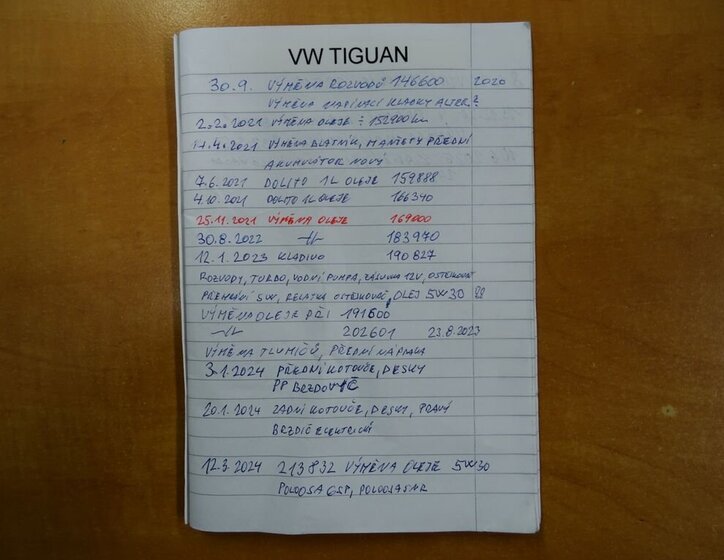 VW TIGUAN
30.9. VÝMĚNA ROZVODŮ 146600 2020
VÝMĚNA NAPÍNACÍ KLADKY ALTER.
2.2.2021 VÝMĚNA OLEJE 152900 km
14.4.2021 VÝMĚNA BLATNÍK, MANŽETY PŘEDNÍ
AKUMULÁTOR NOVÝ
7.6.2021 DOLITO 1L OLEJE 159888
4.10.2021 DOLITO 1L OLEJE 166340
25.11.2021 VÝMĚNA OLEJE 169000
30.8.2022 -//- 183970
12.1.2023 KLADIVO 190827
ROZVODY, TURBO, VODNÍ PUMPA, ZÁSUVKA 12V, OSTŘIKOVAČ
PŘEHRÁNÍ SW, RELÁTKA OSTŘIKOVAČ, OLEJ 5W30
VÝMĚNA OLEJE PŘI 191600
-//- 202601 23.8.2023
VÝMĚNA TLUMIČŮ, PŘEDNÍ NÁPRAVA
3.1.2024 PŘEDNÍ KOTOUČE, DESKY
PP
20.1.2024 ZADNÍ KOTOUČE, DESKY, PRAVÝ
BRZDIČ ELEKTRICKÝ
12.3.2024 213832 VÝMĚNA OLEJE 5W30
POLOOSA